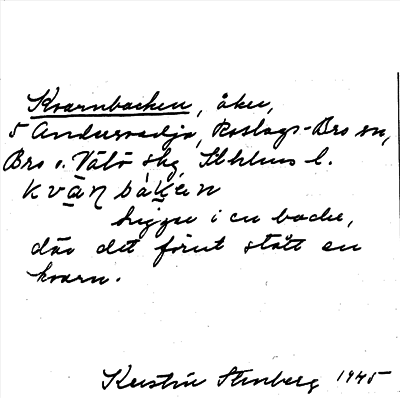 Kvarnbacken, åker,
5 Andersvedja, Roslags-Bro sn,
Bro o. Vätö skg, Sthlms l.
kvan baken
ligger i en backe,
där det förut stått en
kvarn.
Kerstin Stenberg 1945